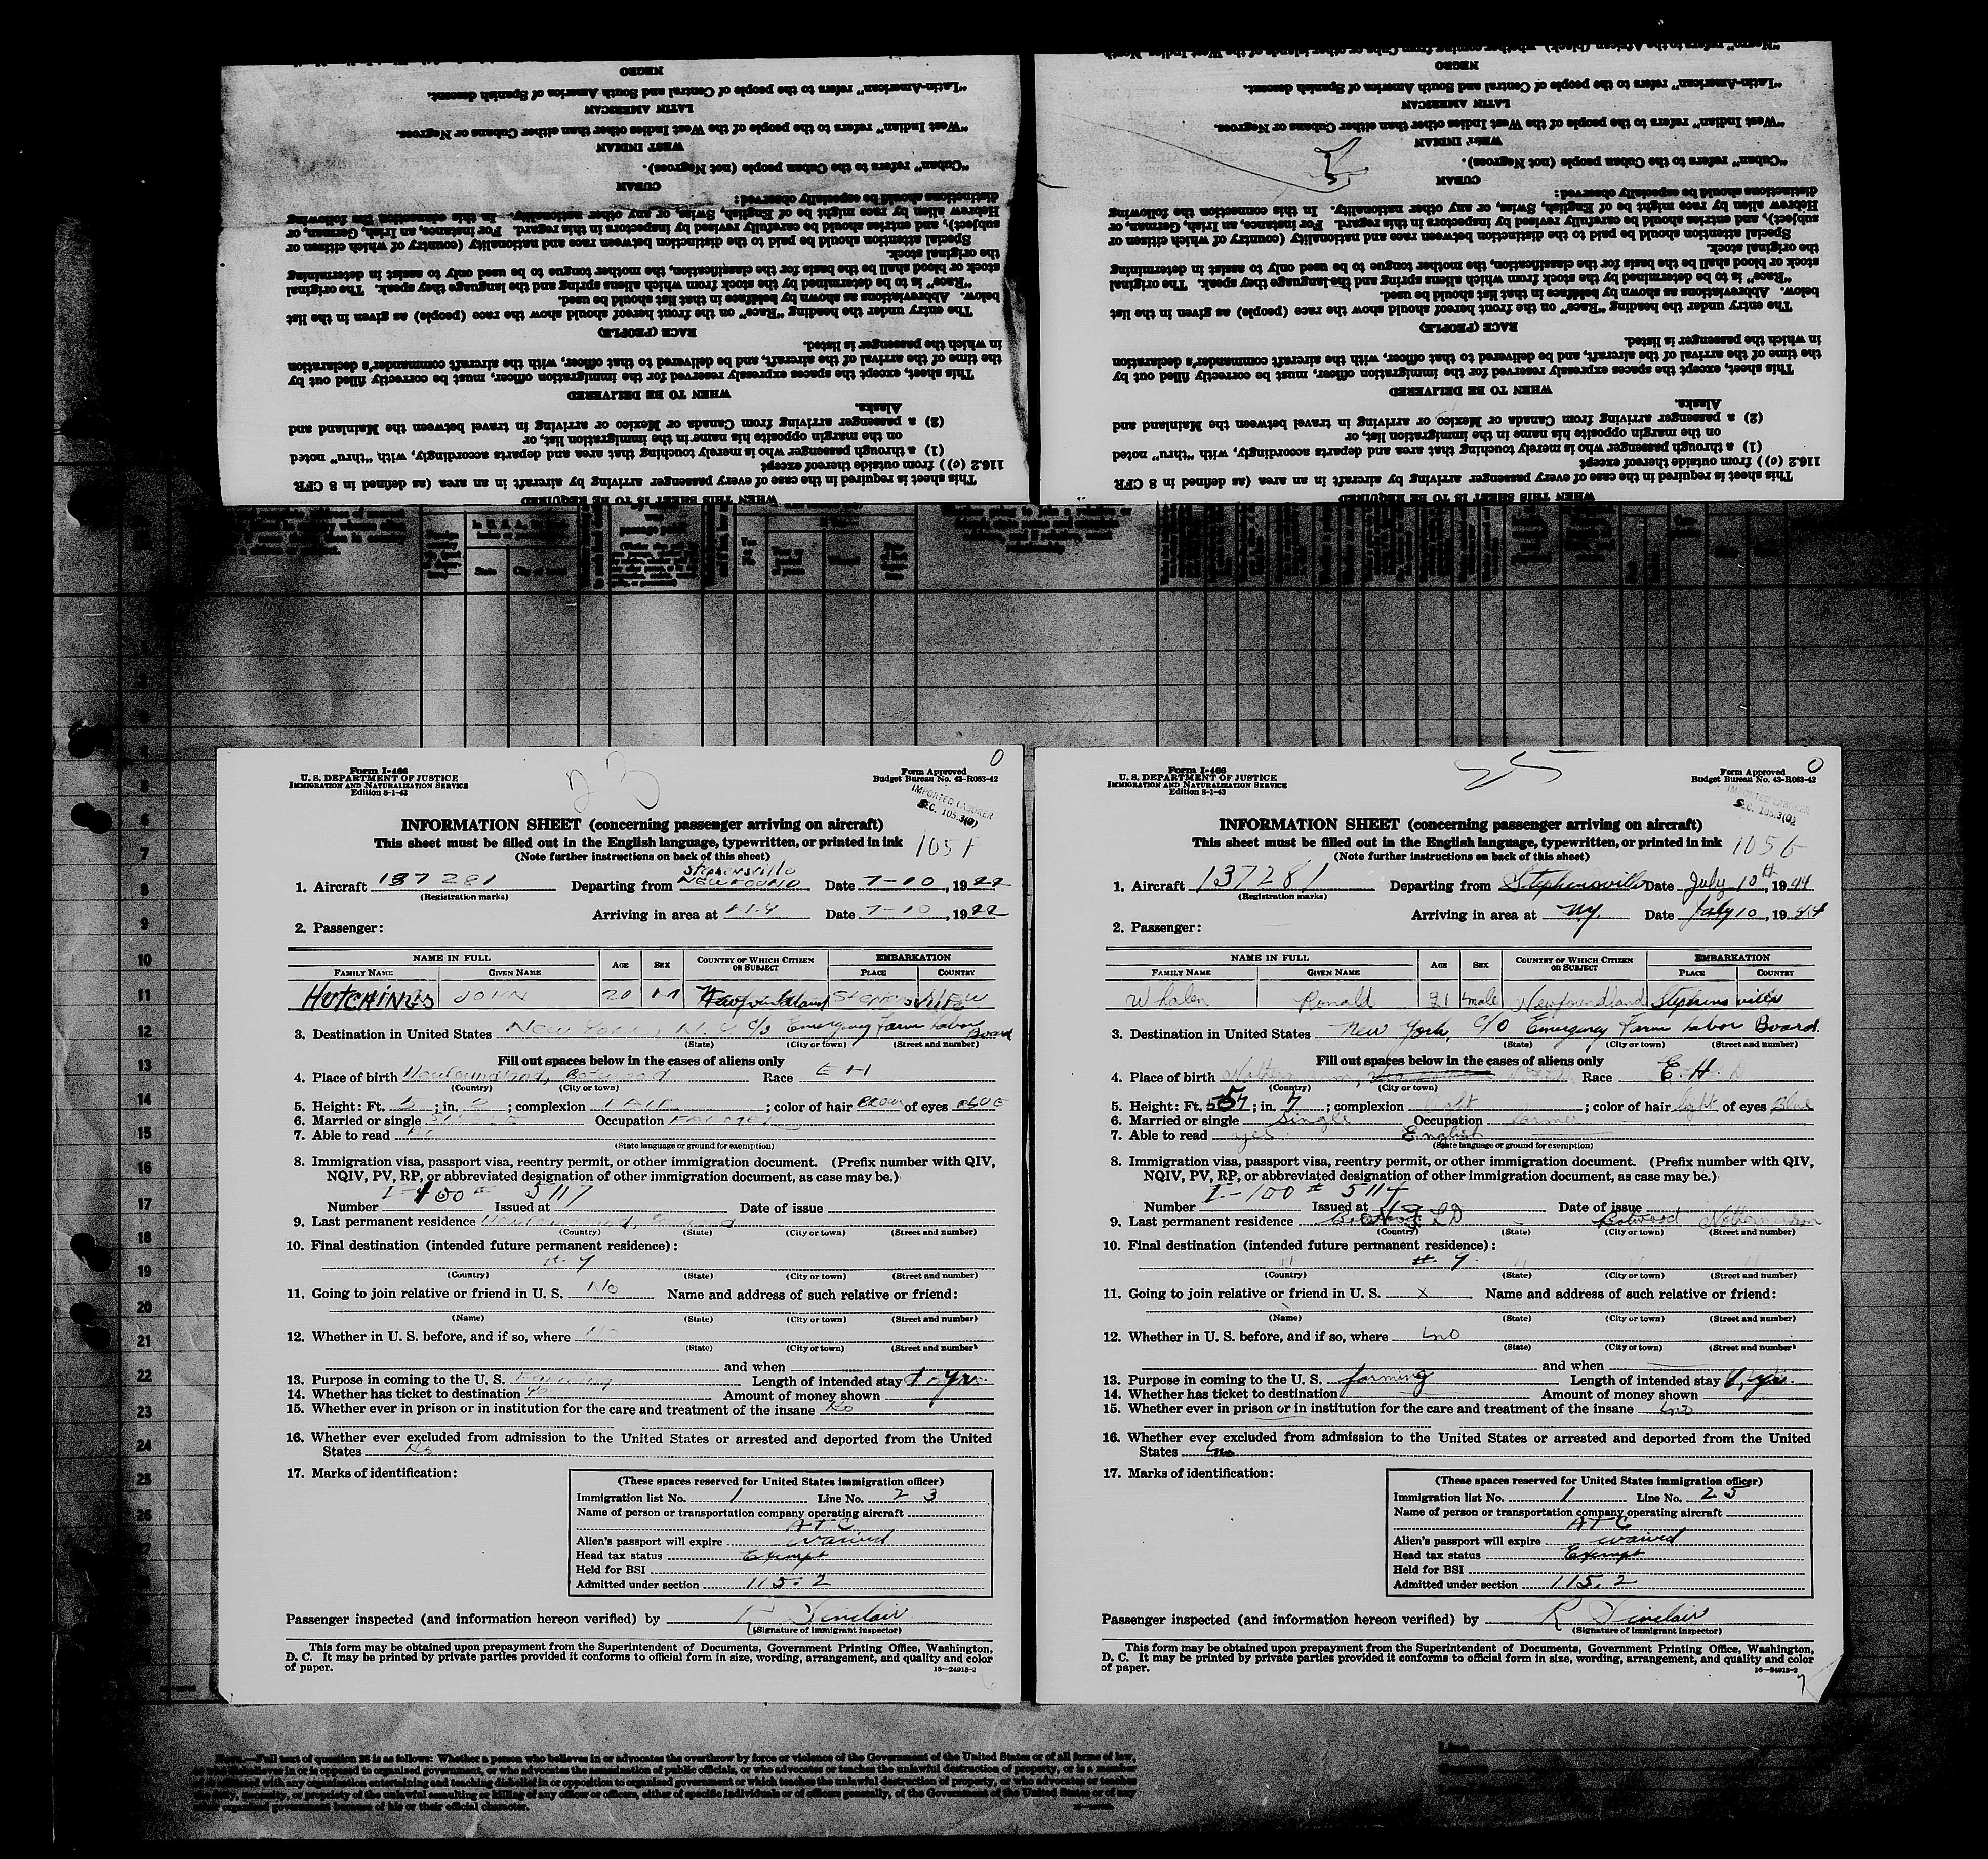 "Negro" refers to the African (black), whether coming from Cuba or other islands of the West Indies, North
NEGRO
"Latin-American" refers to the people of Central and South America of Spanish descent.
LATIN AMERICAN
"West Indian" refers to the people of the West Indies other than either Cubans or Negroes.
WEST INDIAN
"Cuban" refers to the Cuban people (not Negroes).
CUBAN
distinctions should be especially observed:
Hebrew alien by race might be of English, Swiss, or any other nationality. In this connection the following
subject), and entries should be carefully revised by inspectors in this regard. For instance, an Irish, German, or
Special attention should be paid to the distinction between race and nationality (country of which citizen or
the original stock.
stock or blood shall be the basis for the classification, the mother tongue to be used only to assist in determining
"Race" is to be determined by the stock from which aliens spring and the language they speak. The original
below. Abbreviations as shown by boldface in that list should be used.
The entry under the heading "Race" on the front hereof should show the race (people) as given in the list
RACE (PEOPLE)
in which the passenger is listed.
the time of the arrival of the aircraft, and be delivered to that officer, with the aircraft commander's declaration
This sheet, except the spaces expressly reserved for the immigration officer, must be correctly filled out by
WHEN TO BE DELIVERED
Alaska.
(2) a passenger arriving from Canada or Mexico or arriving in travel between the Mainland and
on the margin opposite his name in the immigration list, or
(1) a through passenger who is merely touching that area and departs accordingly, with "thru" noted
116.2 (e)) from outside thereof except
This sheet is required in the case of every passenger arriving by aircraft in an area (as defined in 8 CFR
WHEN THIS SHEET IS TO BE REQUIRED
State City or town
5
6
7
8
9
10
11
12
13
14
15
16
17
18
19
20
21
22
23
24
25
26
27
Form I-466
U. S. DEPARTMENT OF JUSTICE
IMMIGRATION AND NATURALIZATION SERVICE
Edition 8-1-43
23
0
Form Approved
Budget Bureau No. 43-R063-42
IMPORTED LABORER
SEC. 105.3(0)
INFORMATION SHEET (concerning passenger arriving on aircraft)
This sheet must be filled out in the English language, typewritten, or printed in ink
(Note further instructions on back of this sheet)
1. Aircraft 137281 Departing from Stephensville NEWFOUND Date 7-10, 1944
(Registration marks)
Arriving in area at N.Y Date 7-10, 1944
2. Passenger:
NAME IN FULL AGE SEX COUNTRY OF WHICH CITIZEN OR SUBJECT EMBARKATION
FAMILY NAME GIVEN NAME PLACE COUNTRY
HUTCHINGS JOHN 20 M Newfoundland
3. Destination in United States New York, N.Y c/o Emergency Farm Labor Board
(State) (City or town) (Street and number)
Fill out spaces below in the cases of aliens only
4. Place of birth Newfoundland, Botwood Race EH
(Country) (City or town)
5. Height: Ft. 5; in.; complexion FAIR; color of hair BROWN of eyes BLUE
6. Married or single SINGLE Occupation FARMER
7. Able to read
(State language or ground for exemption)
8. Immigration visa, passport visa, reentry permit, or other immigration document. (Prefix number with QIV,
NQIV, PV, RP, or abbreviated designation of other immigration document, as case may be.)
I-100 # 5117
Number Issued at Date of issue
9. Last permanent residence Newfoundland, Botwood
(Country) (State) (City or town) (Street and number)
10. Final destination (intended future permanent residence):
# 9
(Country) (State) (City or town) (Street and number)
11. Going to join relative or friend in U. S. No Name and address of such relative or friend:
(Name) (State) (City or town) (Street and number)
12. Whether in U. S. before, and if so, where No
(State) (City or town) (Street and number)
and when
13. Purpose in coming to the U. S. Farming Length of intended stay 1 yr.
14. Whether has ticket to destination Amount of money shown
15. Whether ever in prison or in institution for the care and treatment of the insane No
16. Whether ever excluded from admission to the United States or arrested and deported from the United
States No
17. Marks of identification:
(These spaces reserved for United States immigration officer)
Immigration list No. 1 Line No. 23
Name of person or transportation company operating aircraft
ATC
Alien's passport will expire waived
Head tax status Exempt
Held for BSI
Admitted under section 115.2
Passenger inspected (and information hereon verified) by R Sinclair
(Signature of immigrant inspector)
This form may be obtained upon prepayment from the Superintendent of Documents, Government Printing Office, Washington,
D. C. It may be printed by private parties provided it conforms to official form in size, wording, arrangement, and quality and color
of paper.
16—24915-2
"Negro" refers to the African (black), whether coming from Cuba or other islands of the West Indies, North
NEGRO
"Latin-American" refers to the people of Central and South America of Spanish descent.
LATIN AMERICAN
"West Indian" refers to the people of the West Indies other than either Cubans or Negroes.
WEST INDIAN
"Cuban" refers to the Cuban people (not Negroes).
CUBAN
distinctions should be especially observed:
Hebrew alien by race might be of English, Swiss, or any other nationality. In this connection the following
subject), and entries should be carefully revised by inspectors in this regard. For instance, an Irish, German, or
Special attention should be paid to the distinction between race and nationality (country of which citizen or
the original stock.
stock or blood shall be the basis for the classification, the mother tongue to be used only to assist in determining
"Race" is to be determined by the stock from which aliens spring and the language they speak. The original
below. Abbreviations as shown by boldface in that list should be used.
The entry under the heading "Race" on the front hereof should show the race (people) as given in the list
RACE (PEOPLE)
in which the passenger is listed.
the time of the arrival of the aircraft, and be delivered to that officer, with the aircraft commander's declaration
This sheet, except the spaces expressly reserved for the immigration officer, must be correctly filled out by
WHEN TO BE DELIVERED
Alaska.
(2) a passenger arriving from Canada or Mexico or arriving in travel between the Mainland and
on the margin opposite his name in the immigration list, or
(1) a through passenger who is merely touching that area and departs accordingly, with "thru" noted
116.2 (e)) from outside thereof except
This sheet is required in the case of every passenger arriving by aircraft in an area (as defined in 8 CFR
WHEN THIS SHEET IS TO BE REQUIRED
Form I-466
U. S. DEPARTMENT OF JUSTICE
IMMIGRATION AND NATURALIZATION SERVICE
Edition 8-1-43
25
0
Form Approved
Budget Bureau No. 43-R063-42
IMPORTED LABORER
SEC. 105.3(0)
INFORMATION SHEET (concerning passenger arriving on aircraft)
This sheet must be filled out in the English language, typewritten, or printed in ink
(Note further instructions on back of this sheet)
1. Aircraft 137281 Departing from Stephensville Date July 10th, 1944
(Registration marks)
Arriving in area at NY. Date July 10, 1944
2. Passenger:
NAME IN FULL AGE SEX COUNTRY OF WHICH CITIZEN OR SUBJECT EMBARKATION
FAMILY NAME GIVEN NAME PLACE COUNTRY
Whalen Ronald 21 male Newfoundland Stephensville
3. Destination in United States New York, C/O Emergency Farm Labor Board.
(State) (City or town) (Street and number)
Fill out spaces below in the cases of aliens only
4. Place of birth Race E. H.
(Country) (City or town)
5. Height: Ft. 5; in. 7; complexion light; color of hair light of eyes Blue
6. Married or single Single Occupation farmer
7. Able to read yes English
(State language or ground for exemption)
8. Immigration visa, passport visa, reentry permit, or other immigration document. (Prefix number with QIV,
NQIV, PV, RP, or abbreviated designation of other immigration document, as case may be.)
I-100 # 5114
Number Issued at Date of issue
9. Last permanent residence NFLD Botwood
(Country) (State) (City or town) (Street and number)
10. Final destination (intended future permanent residence):
# 9.
(Country) (State) (City or town) (Street and number)
11. Going to join relative or friend in U. S. x Name and address of such relative or friend:
(Name) (State) (City or town) (Street and number)
12. Whether in U. S. before, and if so, where no
(State) (City or town) (Street and number)
and when
13. Purpose in coming to the U. S. farming Length of intended stay 1 yr.
14. Whether has ticket to destination Amount of money shown
15. Whether ever in prison or in institution for the care and treatment of the insane no
16. Whether ever excluded from admission to the United States or arrested and deported from the United
States no
17. Marks of identification:
(These spaces reserved for United States immigration officer)
Immigration list No. 1 Line No. 25
Name of person or transportation company operating aircraft
ATC
Alien's passport will expire waived
Head tax status Exempt
Held for BSI
Admitted under section 115.2
Passenger inspected (and information hereon verified) by R Sinclair
(Signature of immigrant inspector)
This form may be obtained upon prepayment from the Superintendent of Documents, Government Printing Office, Washington,
D. C. It may be printed by private parties provided it conforms to official form in size, wording, arrangement, and quality and color
of paper.
16—24915-2
7
NOTE.—Full text of question 26 is as follows: Whether a person who believes in or advocates the overthrow by force or violence of the Government of the United States or of all forms of law,
or who disbelieves in or is opposed to organized government, or who advocates the assassination of public officials, or who advocates or teaches the unlawful destruction of property, or is a member
or affiliated with any organization entertaining and teaching disbelief in or opposition to organized government or which teaches the unlawful destruction of property, or who advocates or teaches
the duty, necessity, or propriety of the unlawful assaulting or killing of any officer or officers, either of specific individuals or of officers generally, of the Government of the United States or of any
other organized government because of his or their official character.